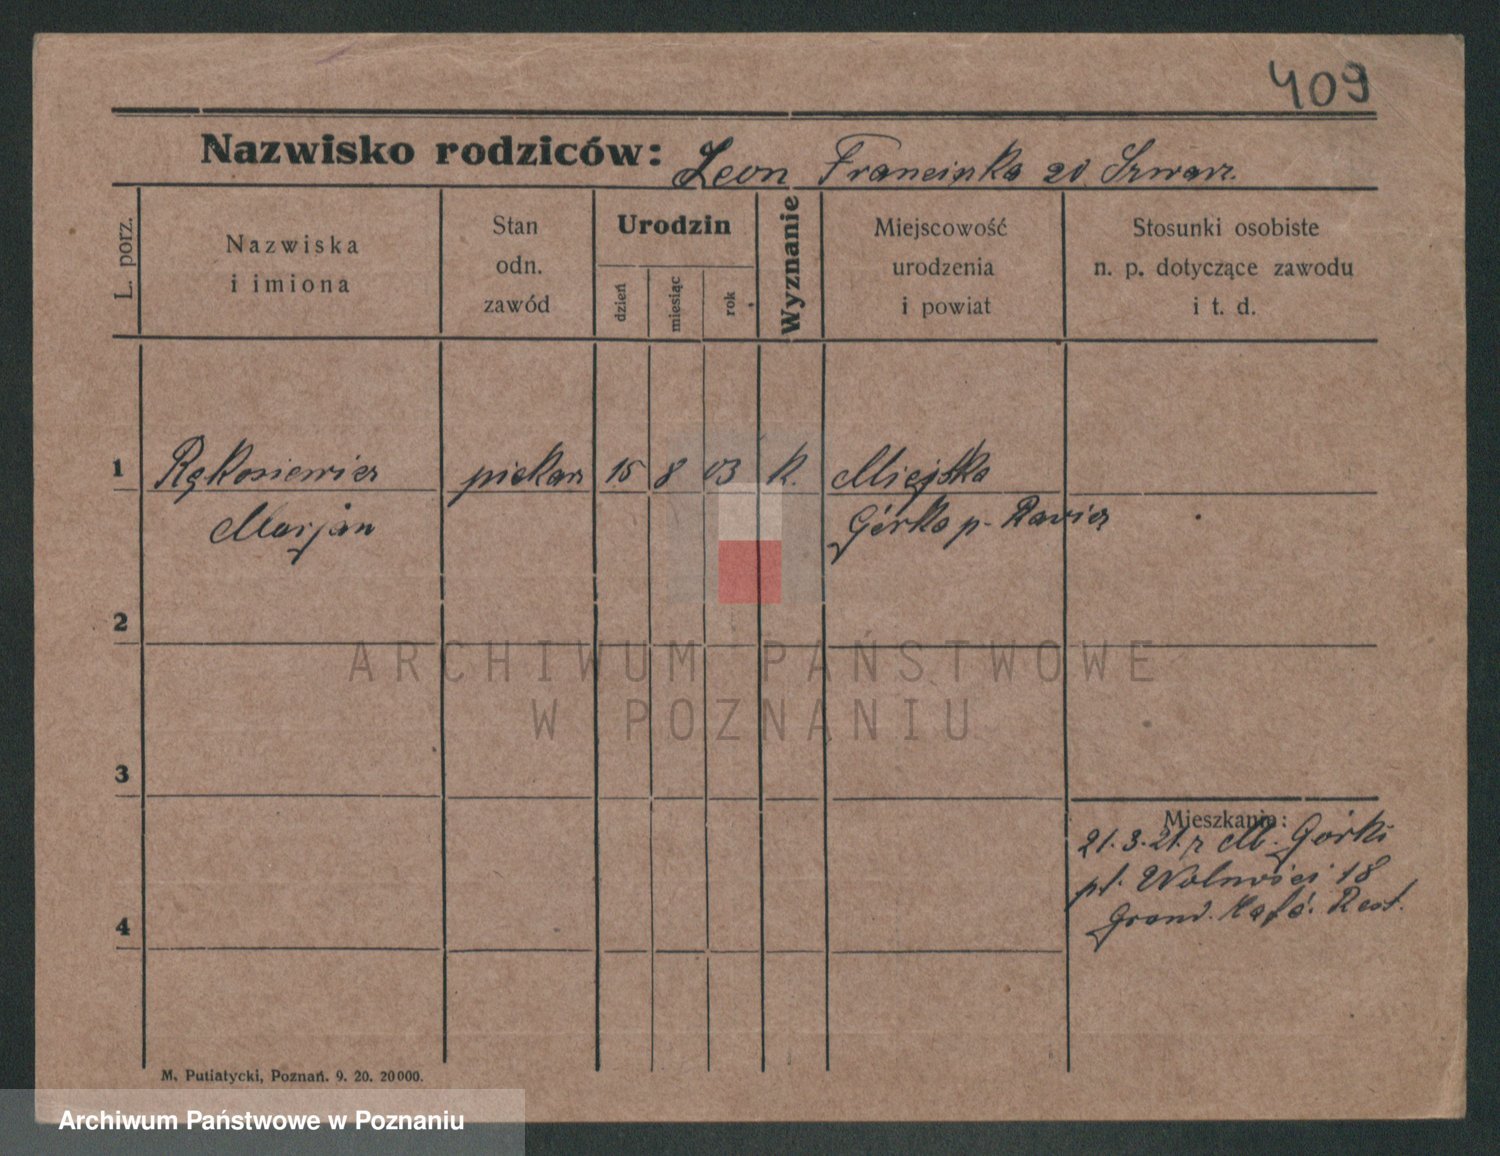 409
Nazwisko rodziców: Leon Franciszka zd. Szwarz.
L. porz.
Nazwiska
i imiona
Stan
odn.
zawód
Urodzin
dzień
miesiąc
rok
Wyznanie
Miejscowość
urodzenia
i powiat
Stosunki osobiste
n. p. dotyczące zawodu
i t. d.
1 Rękosiewicz piekarz 15 8 03 k. Miejska
Marjan Górka p. Rawicz
2
ARCHIWUM PAŃSTWOWE
W POZNANIU
3
Mieszkanie:
21.3.21. z M. Górki
pl. Wolności 18
Grand. Kafé. Rest.
4
M. Putiatycki, Poznań. 9. 20. 20000.
Archiwum Państwowe w Poznaniu